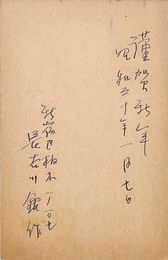 謹賀新年
昭和二十年一月七日
新宿区柏木一ノ一〇七
長谷川 作